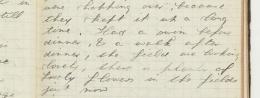 were hopping over, because
they kept it up a long
time. Had a swim before
dinner, & a walk after
dinner, the fields are looking
lovely, there is plenty of
lovely flowers in the fields
just now